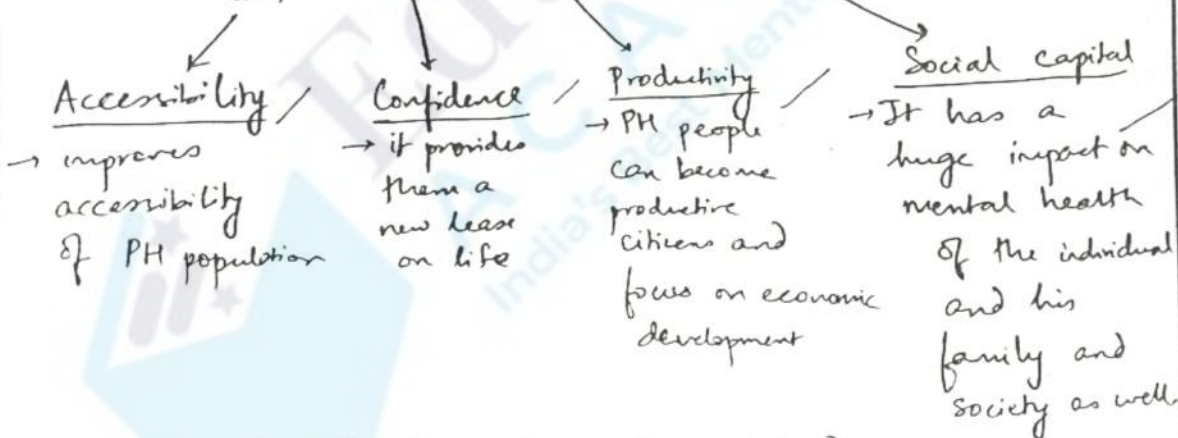 Accessibility
→ improves
accessibility
of PH population
Confidence
→ it provides
them a
new lease
on life
Productivity
→ PH people
can become
productive
citizens and
focus on economic
development
Social capital
→ It has a
huge impact on
mental health
of the individual
and his
family and
society as well.